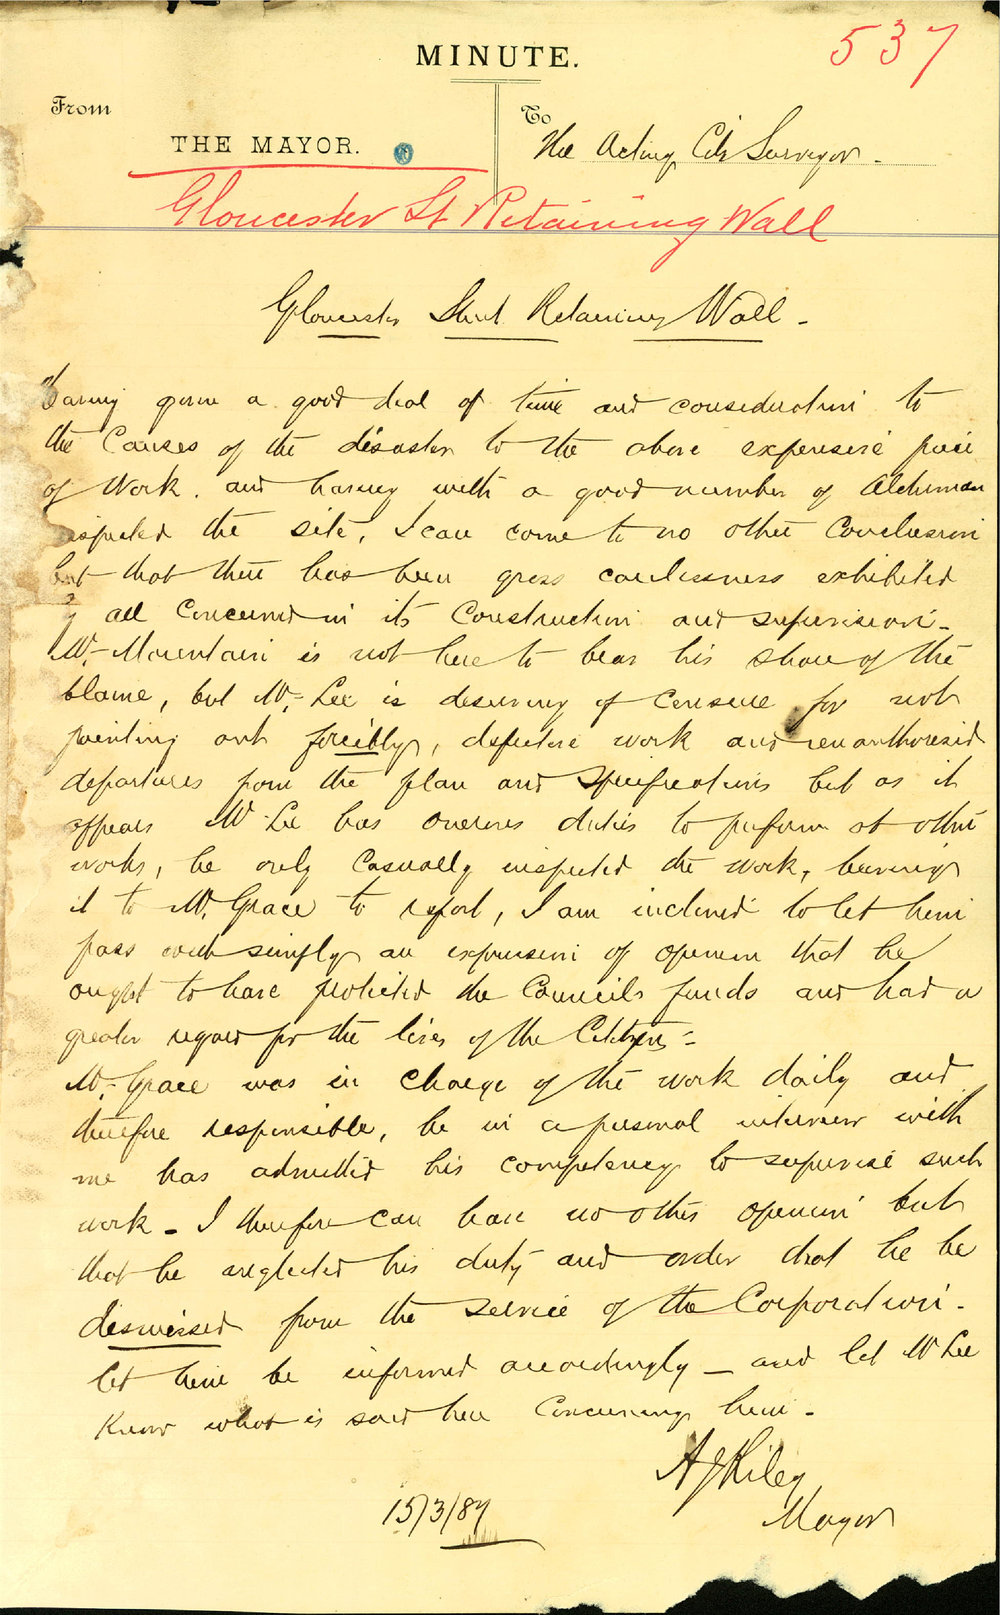 537
MINUTE.
From
To
THE MAYOR.
The Acting City Surveyor.
Gloucester St Retaining Wall
Gloucester Street Retaining Wall -
Having given a good deal of time and consideration to
the Causes of the disaster to the above expensive piece
of Work. and having with a good number of Alderman
inspected the site, I can come to no other Conclusion
but that there has been gross carelessness exhibited
by all Concerned in its Construction and supervision -
Mr. Mountain is not here to bear his share of the
blame, but Mr. Lee is deserving of Censure for not
pointing out forcibly, defective work and unauthorised
departures from the plan and Specifications but as it
appears Mr Lee has onerous duties to perform at other
works, he only Casually inspected the work, leaving
it to Mr. Grace to report, I am inclined to let him
pass with simply an expression of opinion that he
ought to have protected the Councils funds and had a
greater regard for the lives of the Citizens -
Mr. Grace was in Charge of the work daily and
therefore responsible, he in a personal interview with
me has admitted his competency to supervise such
work - I therefore can have no other opinion but
that he neglected his duty and order that he be
dismissed from the service of the Corporation -
let him be informed accordingly - and let Mr Lee
Know what is said here Concerning him -
A J Riley
Mayor
15/3/87